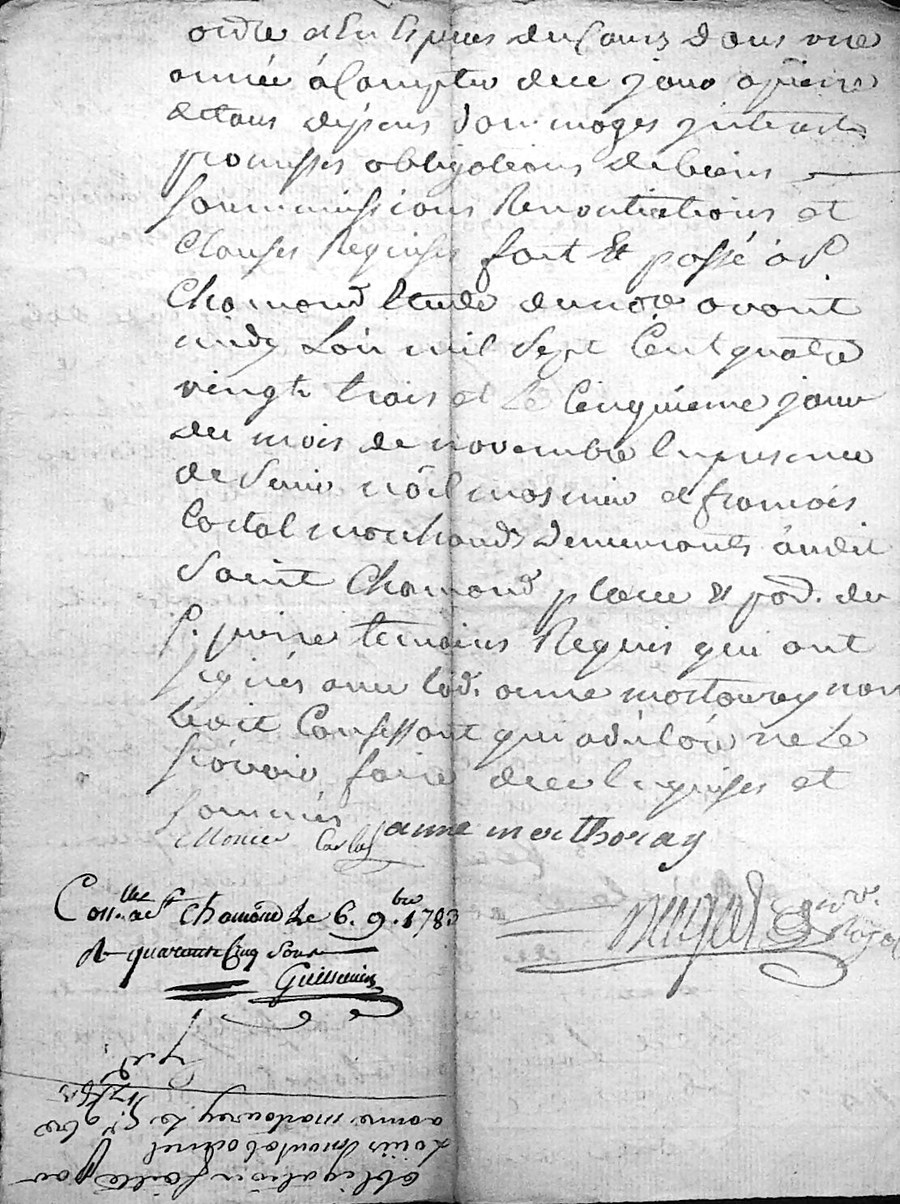 ordre et En Espèces du Cours dans une
année à Compter de ce jour a peine
de tous dépens dommages intérêts
promesses obligations de biens
Soummissions Renontiations et
Clauses Requises fait et passé à St
Chamond Etude du nore avant
midy L'an mil Sept Cent quatre
vingt trois et Le Cinquième jour
du mois de novembre En presence
de Sieurs noël mosnier et francois
marchands demeurants audit
Saint Chamond place et par. de
St. pierre temoins Requis qui ont
signés avec lad. anne mortourey non
Led. Confessant qui a déclaré ne Le
sçavoir faire de ce Enquises et
sommés
Monier anne morthoray
Con.lle a St Chamond Le 6. 9.bre 1783
R quarante Cinq Sous
Royal
obligation faitte par
Loüis
a anne mortourey Le 5e 9bre
1783